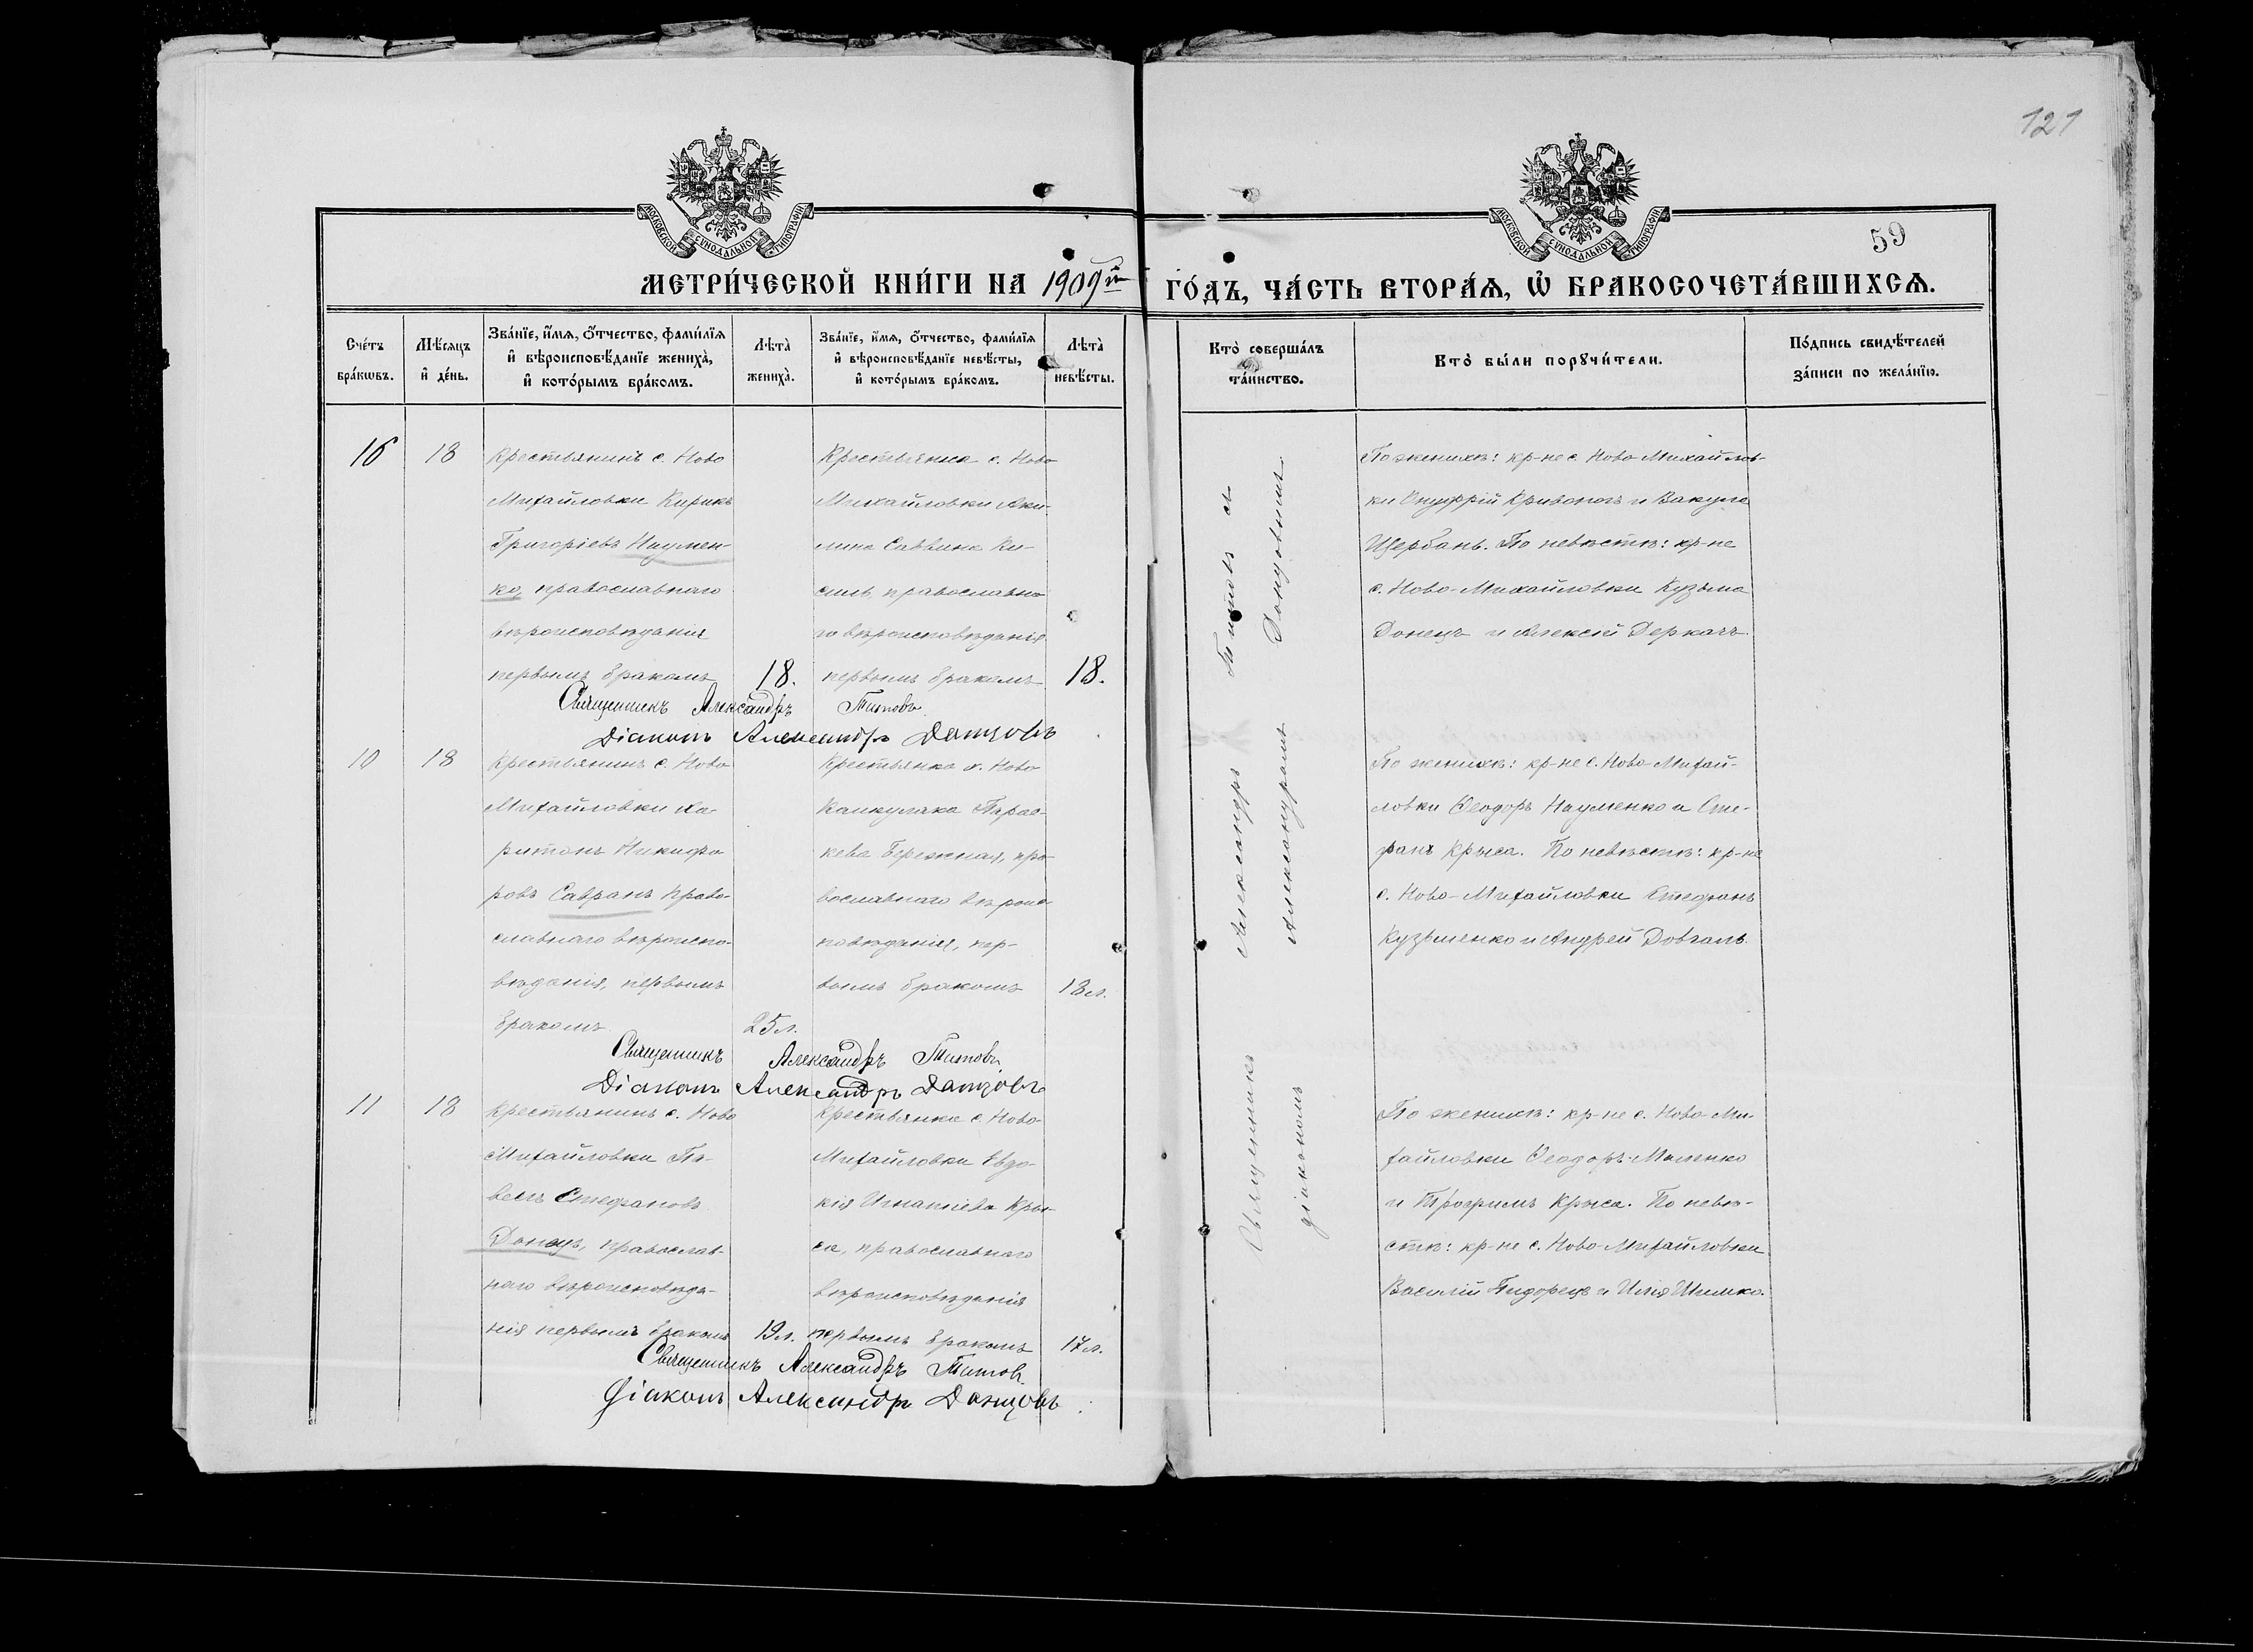 121
МОСКОВСКОЙ СѴНОДАЛЬНОЙ ТИПОГРАФІИ
МОСКОВСКОЙ СѴНОДАЛЬНОЙ ТИПОГРАФІИ
59
МЕТРИ́ЧЕСКОЙ КНИ́ГИ НА 1909й ГО́ДЪ, ЧА́СТЬ ВТОРА́Ѧ, Ѡ҆ БРАКОСОЧЕТА́ВШИХСѦ.
Сче́тъ бра́кѡвъ.
Мѣ́сѧцъ и҆ де́нь.
Зва́нїе, и҆́мѧ, ѻ҆́тчество, фами́лїѧ
и҆ вѣроисповѣ́данїе жениха̀,
и҆ кото́рымъ бра́комъ.
Лѣта̀ жениха̀.
Зва́нїе, и҆́мѧ, ѻ҆́тчество, фами́лїѧ
и҆ вѣроисповѣ́данїе невѣ́сты,
и҆ кото́рымъ бра́комъ.
Лѣта̀ невѣ́сты.
Кто̀ соверша́лъ
та́инство.
Кто̀ бы́ли порꙋчи́тели.
По́дпись свидѣ́телей
за́писи по жела́нїю.
18
Крестьянинъ с. Ново
Михайловки Кирикъ
Григоріевъ Наумен-
ко, православнаго
вѣроисповѣданія
первымъ бракомъ
18.
Крестьянка с. Ново
Михайловки Аки-
лина Саввина Ки-
православна
го вѣроисповѣданія
первымъ бракомъ
18.
Священникъ Александръ Титовъ
Діаконъ Александръ Донцовъ
По женихѣ: кр-не с. Ново Михайлов-
ки Онуфрій Кривоносъ и Вакула
Щербань. По невѣстѣ: кр-не
с. Ново-Михайловки Кузьма
Донецъ и Алексѣй Деркачъ.
10
18
Крестьянинъ с. Ново
Михайловки Ха-
ритонъ Никифо
ровъ Савранъ право-
славнаго вѣроиспо-
вѣданія, первымъ
бракомъ
25 л.
Крестьянка с. Ново
Канкулака Парас-
кева Бережная, пра-
вославнаго вѣроис-
повѣданія, пер-
вымъ бракомъ
18 л.
Священникъ Александръ Титовъ
Діаконъ Александръ Донцовъ
По женихѣ: кр-не с. Ново-Михай-
ловки Ѳеодоръ Науменко и Сте-
фанъ Крыса. По невѣстѣ: кр-не
с. Ново-Михайловки Стефанъ
Кузьменко и Андрей Довгаль.
11
18
Крестьянинъ с. Ново
Михайловки Па-
велъ Стефановъ
Донецъ, православ-
наго вѣроисповѣда-
нія первымъ бракомъ
19 л.
Крестьянка с. Ново-
Михайловки Евдо-
кія Игнатіева Кры-
са, православнаго
вѣроисповѣданія
первымъ бракомъ
17 л.
Священникъ Александръ Титовъ
Діаконъ Александръ Донцовъ
По женихѣ: кр-не с. Ново-Ми-
хайловки Ѳеодоръ
и Трофимъ Крыса. По невѣ-
стѣ: кр-не с. Ново-Михайловки
Василій Сидорецъ и Илія
Священникъ Александръ Титовъ съ
діакономъ Александромъ Донцовымъ.